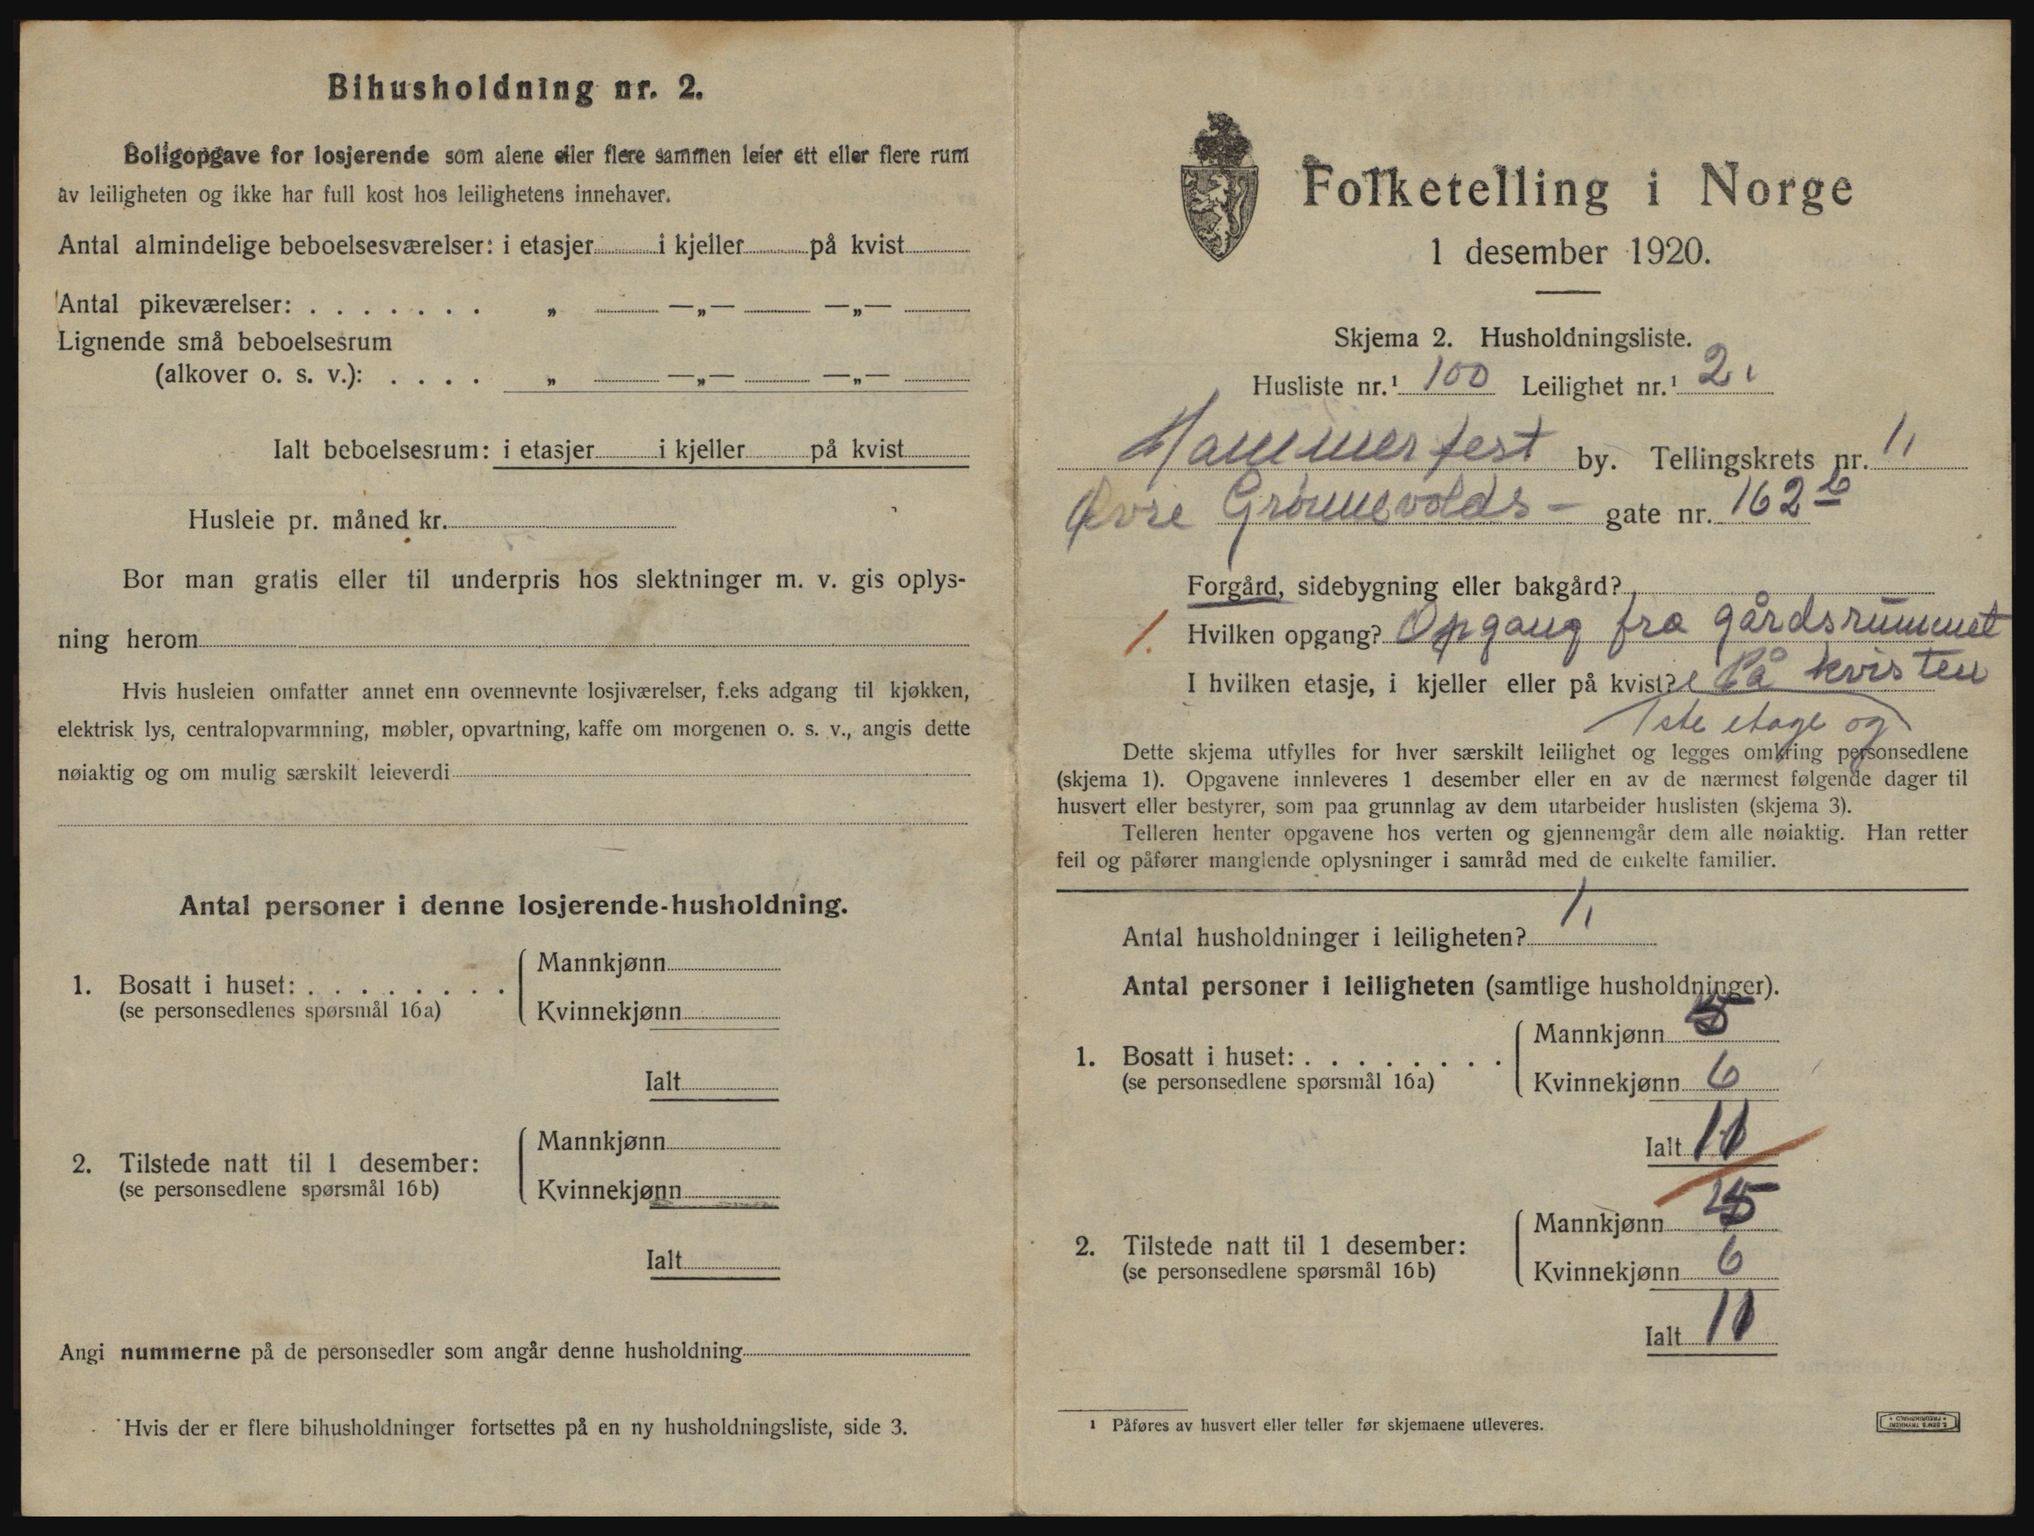 Bihusholdning nr. 2.
Boligopgave for losjerende som alene eller flere sammen leier ett eller flere rum
av leiligheten og ikke har full kost hos leilighetens innehaver.
Antal almindelige beboelsesværelser: i etasjer i kjeller på kvist
Antal pikeværelser: . . . . . . . „ —„— —„—
Lignende små beboelsesrum
(alkover o. s. v.): . . . . „ —„— —„—
Ialt beboelsesrum: i etasjer i kjeller på kvist
Husleie pr. måned kr.
Bor man gratis eller til underpris hos slektninger m. v. gis oplys-
ning herom
Hvis husleien omfatter annet enn ovennevnte losjiværelser, f.eks adgang til kjøkken,
elektrisk lys, centralopvarmning, møbler, opvartning, kaffe om morgenen o. s. v., angis dette
nøiaktig og om mulig særskilt leieverdi
Antal personer i denne losjerende-husholdning.
1. Bosatt i huset: . . . . . . . . Mannkjønn
(se personsedlenes spørsmål 16a) Kvinnekjønn
Ialt
2. Tilstede natt til 1 desember: Mannkjønn
(se personsedlene spørsmål 16b) Kvinnekjønn
Ialt
Angi nummerne på de personsedler som angår denne husholdning
Hvis der er flere bihusholdninger fortsettes på en ny husholdningsliste, side 3.
Folketelling i Norge
1 desember 1920.
Skjema 2. Husholdningsliste.
Husliste nr.¹ 100 Leilighet nr.¹ 2.
Hammerfest by. Tellingskrets nr. 1.
Øvre Grønnevolds- gate nr. 162 b
Forgård, sidebygning eller bakgård?
1. Hvilken opgang? Opgang fra gårdsrummet
I hvilken etasje, i kjeller eller på kvist? På kvisten
1ste etage og
Dette skjema utfylles for hver særskilt leilighet og legges omkring personsedlene
(skjema 1). Opgavene innleveres 1 desember eller en av de nærmest følgende dager til
husvert eller bestyrer, som paa grunnlag av dem utarbeider huslisten (skjema 3).
Telleren henter opgavene hos verten og gjennemgår dem alle nøiaktig. Han retter
feil og påfører manglende oplysninger i samråd med de enkelte familier.
Antal husholdninger i leiligheten? 1.
Antal personer i leiligheten (samtlige husholdninger).
1. Bosatt i huset: . . . . . . . . Mannkjønn 5
(se personsedlene spørsmål 16a) Kvinnekjønn 6
Ialt 11
2. Tilstede natt til 1 desember: Mannkjønn 5
(se personsedlene spørsmål 16b) Kvinnekjønn 6
Ialt 11
¹ Påføres av husvert eller teller før skjemaene utleveres.